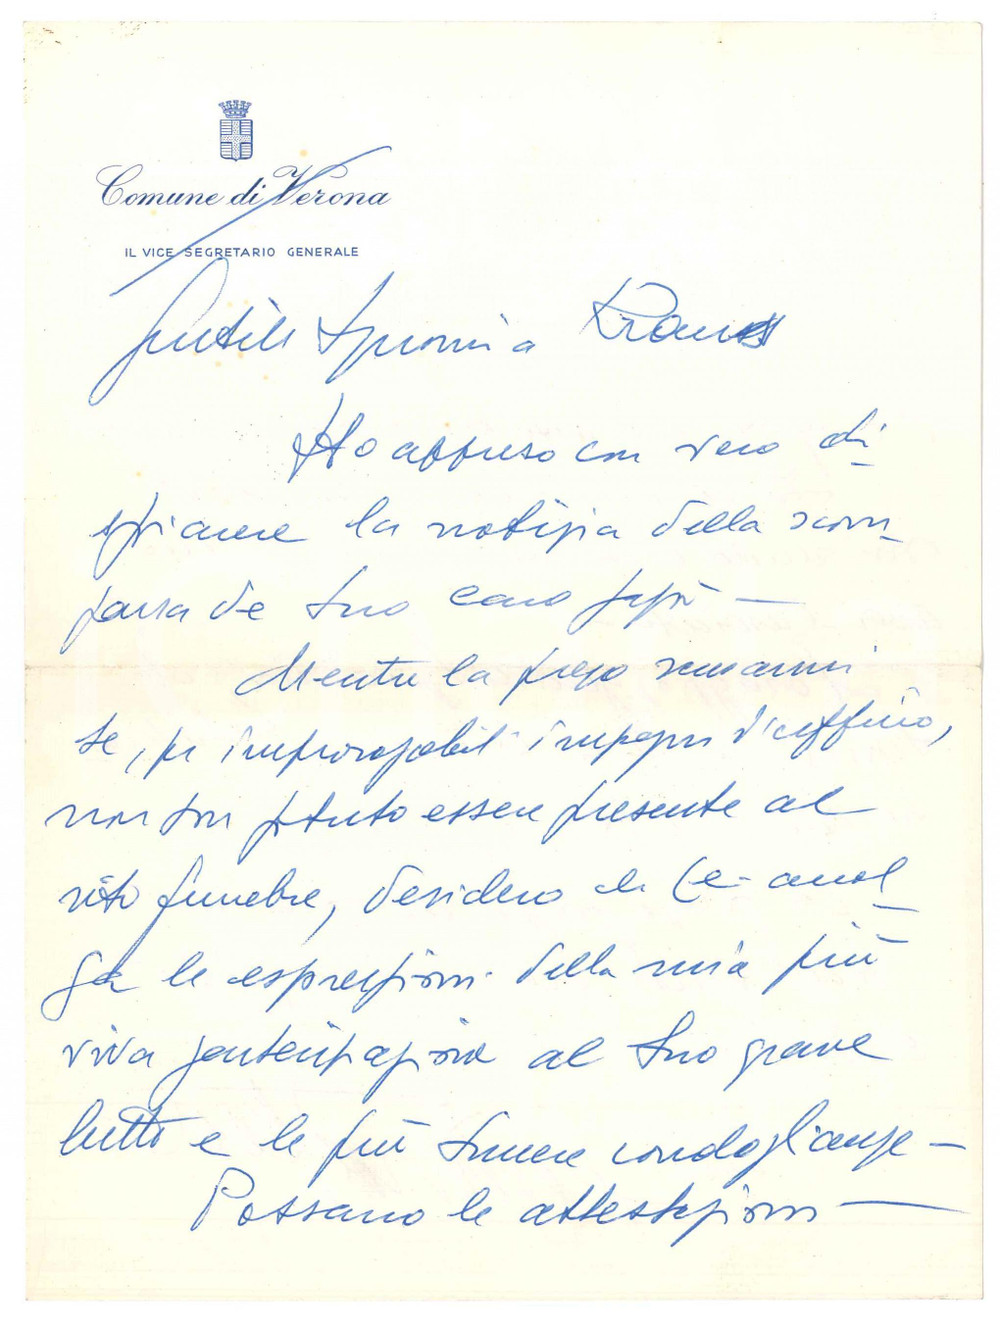 Comune di Verona
IL VICE SEGRETARIO GENERALE
Gentile Signorina
Ho appreso con vero di-
spiacere la notizia della scom-
parsa de Suo caro papà —
Mentre la prego scusarmi
se, per improrogabili impegni d'ufficio,
non son potuto essere presente al
rito funebre, desidero che Le
le espressioni della mia più
viva partecipazione al Suo grave
lutto e le più sincere condoglianze —
Possano le attestazioni —